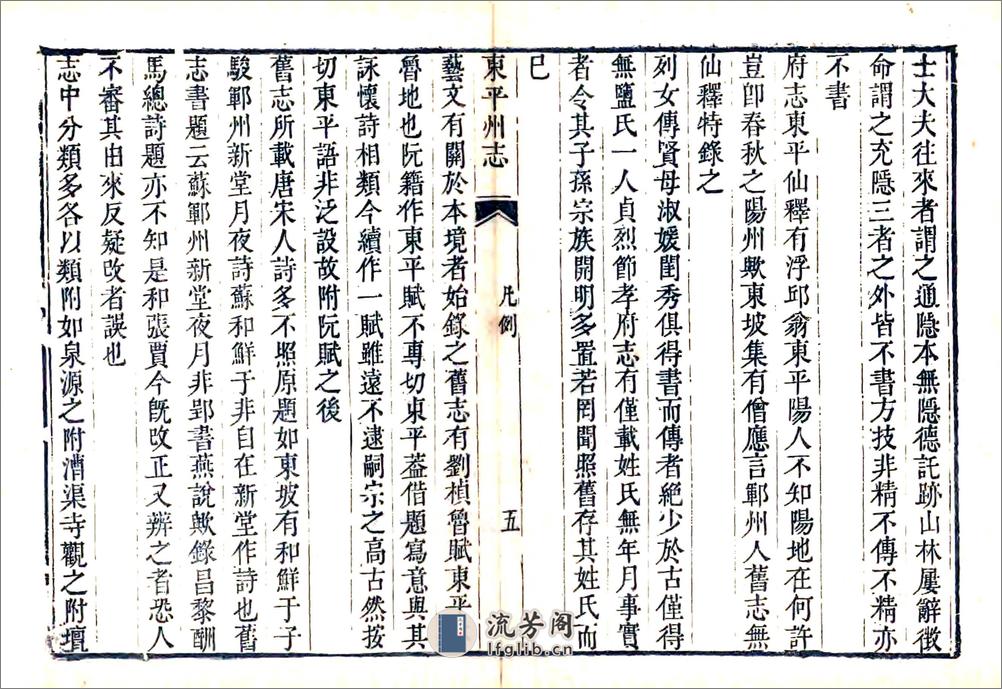 士大夫往來者謂之通隱本無隱德託跡山林屢辭徵
命謂之充隱三者之外皆不書方技非精不傳不精亦
不書
府志東平仙釋有浮邱翁東平陽人不知陽地在何許
豈卽春秋之陽州歟東坡集有僧應言鄆州人舊志無
仙釋特錄之
列女傳賢母淑媛閨秀俱得書而傳者絶少於古僅得
無鹽氏一人貞烈節孝府志有僅載姓氏無年月事實
者令其子孫宗族開明多置若罔聞照舊存其姓氏而
已
東平州志 凡例 五
藝文有關於本境者始錄之舊志有劉楨魯賦東平
魯地也阮籍作東平賦不專切東平葢借題寫意與其
詠懷詩相類今續作一賦雖遠不逮嗣宗之高古然按
切東平語非泛設故附阮賦之後
舊志所載唐宋人詩多不照原題如東坡有和鮮于子
駿鄆州新堂月夜詩蘇和鮮于非自在新堂作詩也舊
志書題云蘇鄆州新堂夜月非郢書燕說歟錄昌黎酬
馬總詩題亦不知是和張賈今旣改正又辨之者恐人
不審其由來反疑改者誤也
志中分類多各以類附如泉源之附漕渠寺觀之附壇
流芳阁
lfglib.cn